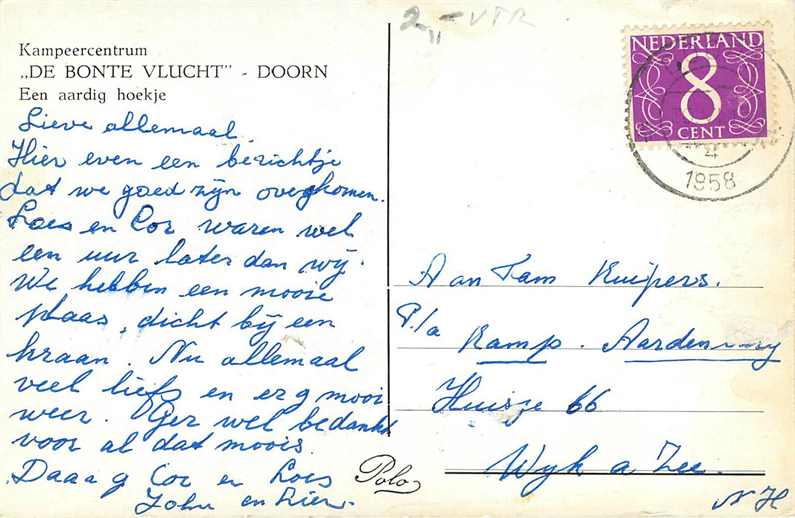 2,- VTR
Kampeercentrum
„DE BONTE VLUCHT" - DOORN
Een aardig hoekje
NEDERLAND
8
CENT
4
1958
Lieve allemaal
Hier even een berichtje
dat we goed zijn overgekomen.
Loes en Cor waren wel
een uur later dan wij.
We hebben een mooie
plaas, dicht bij een
kraan. Nu allemaal
veel liefs en erg mooi
weer. Ger wel bedankt
voor al dat moois.
Daaag Cor en Loes
John en
Aan Fam Kuipers.
P/a Kamp. Aardenburg
Huisje 66
Wyk a Zee.
N H
Polo